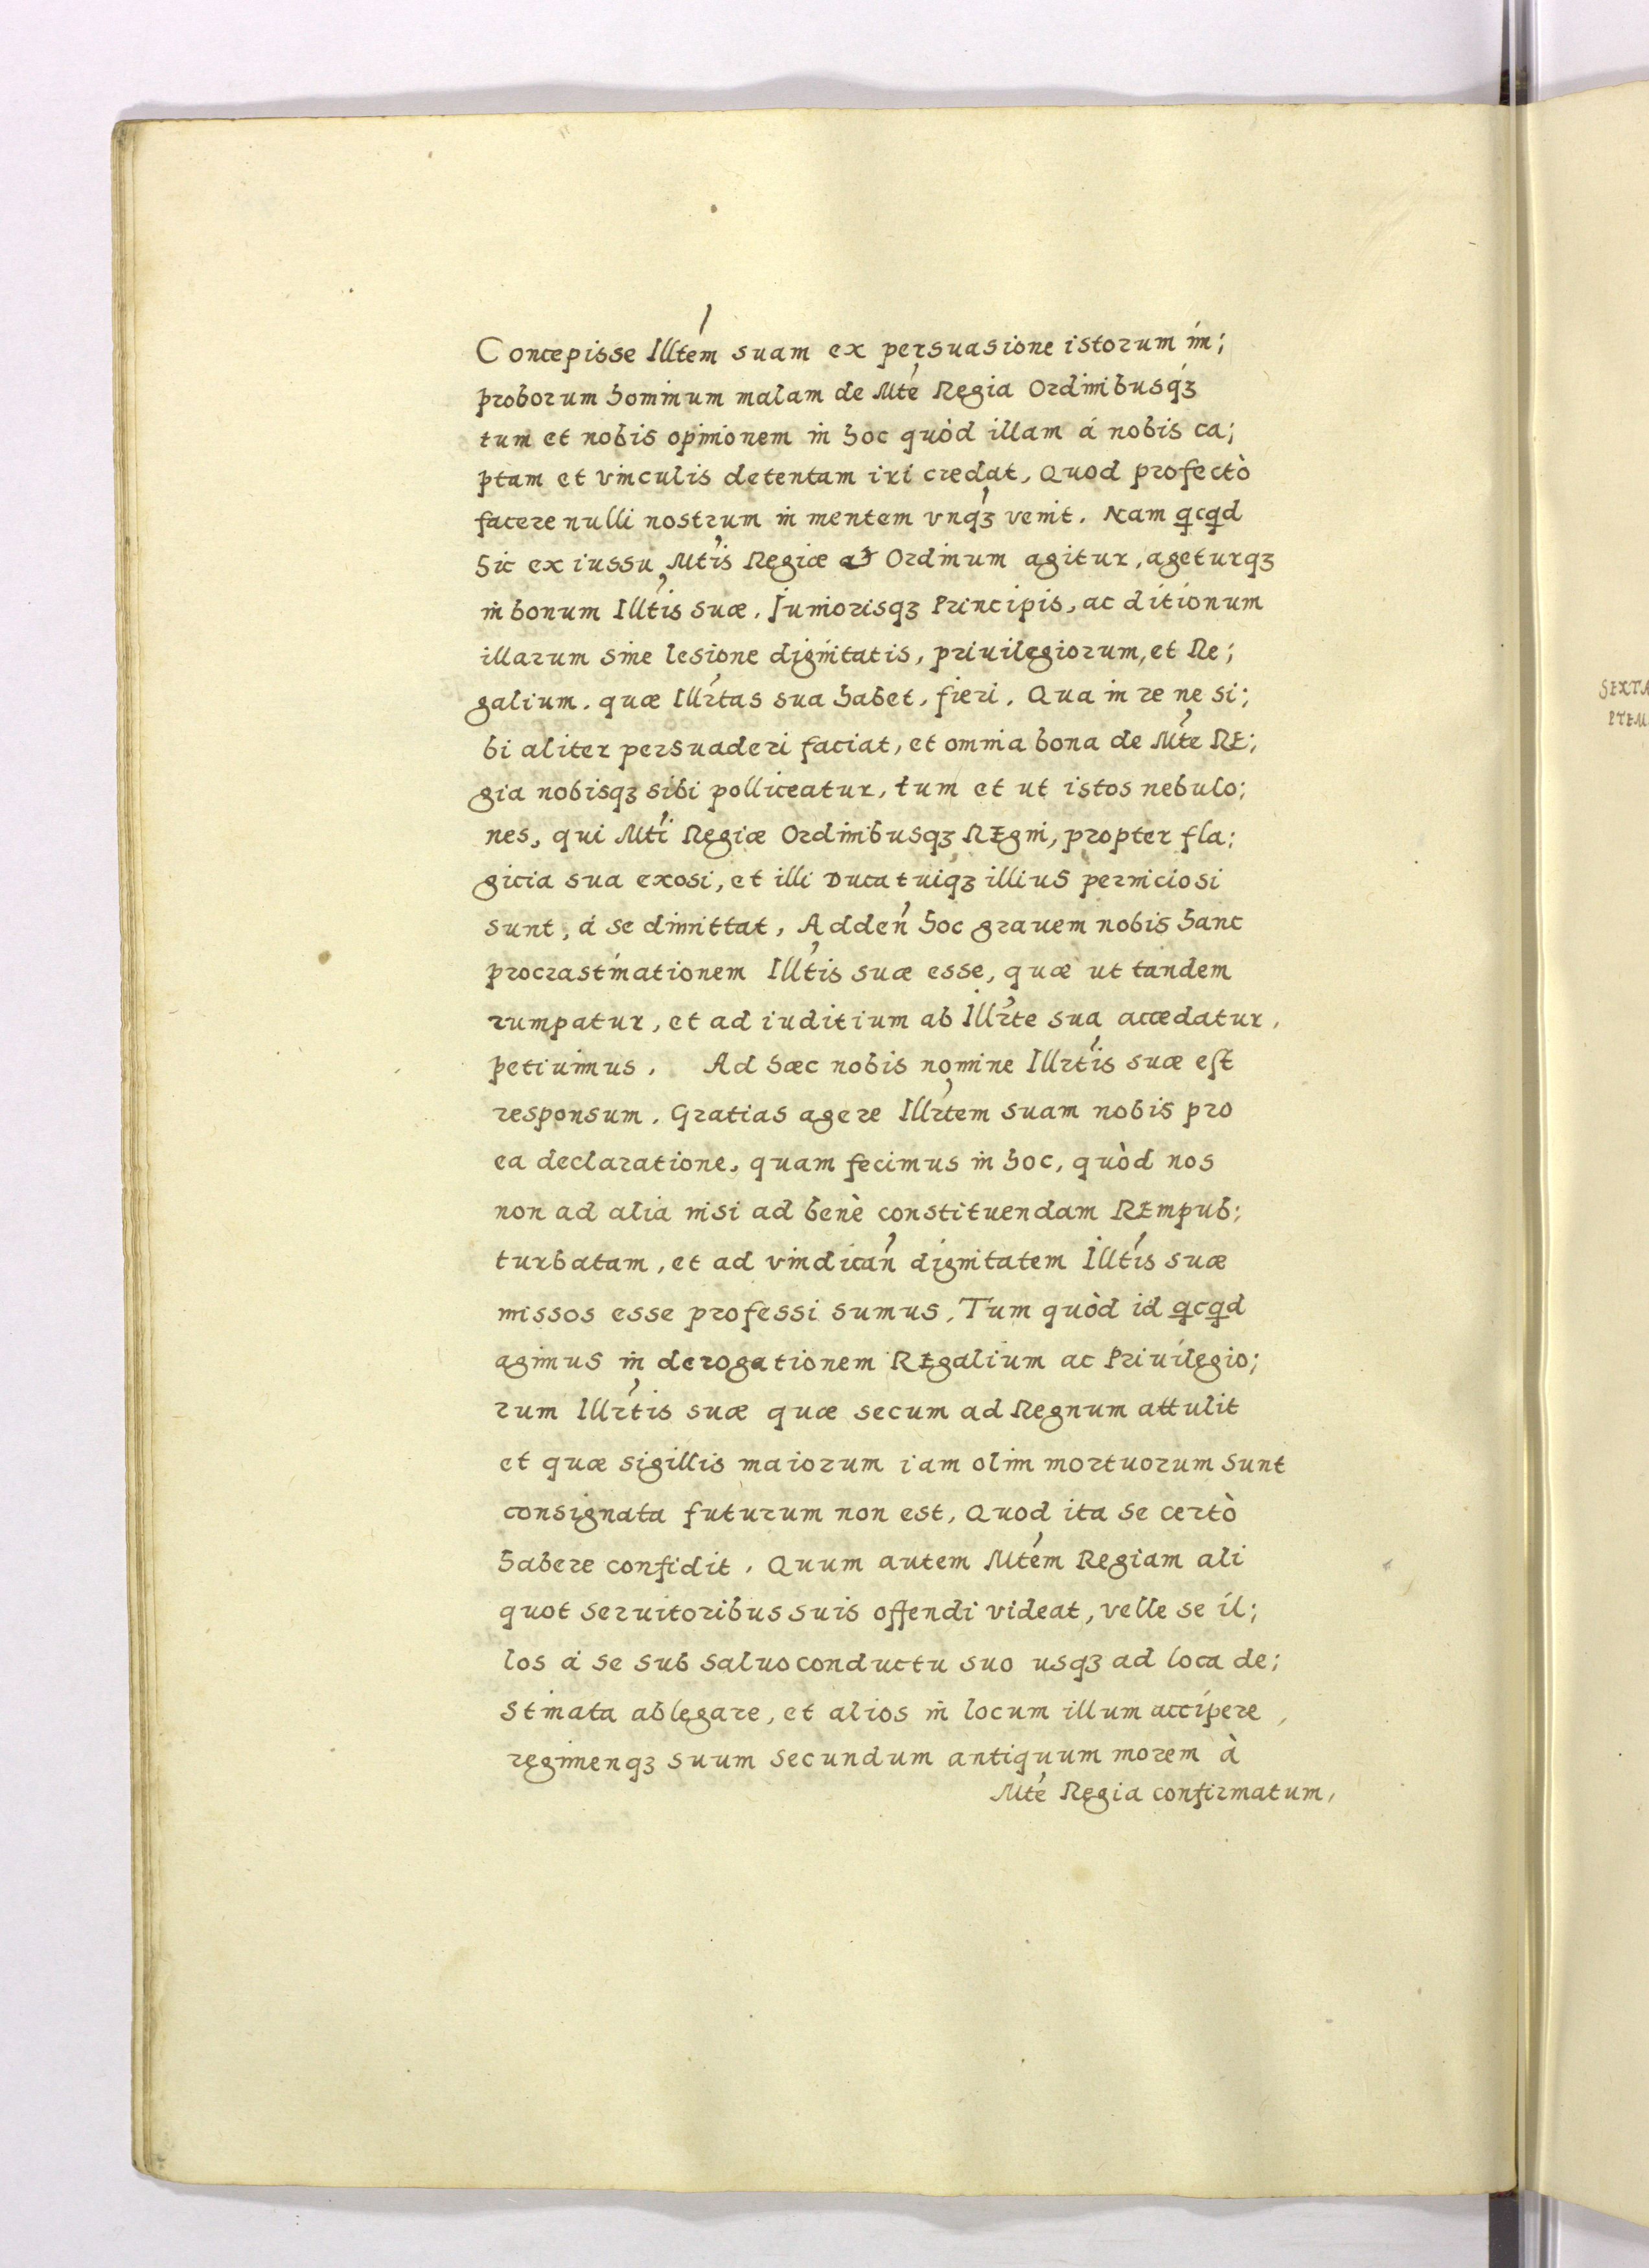 Concepisse Illtem suam ex persuasione istorum im;
proborum hominum malam de Mte Regia Ordinibusqꝫ
tum et nobis opinionem in hoc quòd illam á nobis ca;
ptam et vinculis detentam iri credat, Quod profectò
facere nulli nostrum in mentem vnqꝫ venit. Nam qcqd
hic ex iussu Mtis Regiæ Ordinum agitur, ageturqꝫ
in bonum Illtis suæ, Juniorisqꝫ Principis, ac ditionum
illarum sine lesione dignitatis, priuilegiorum, et Re;
galium, quæ Illrtas sua habet, fieri. Qua in re ne si;
bi aliter persuaderi faciat, et omnia bona de Mte RE;
gia nobisqꝫ sibi polliceatur, tum et ut istos nebulo;
nes, qui Mti Regiæ Ordinibusqꝫ REgni, propter fla;
gicia sua exosi, et illi Ducatuiqꝫ illius perniciosi
sunt, á se dimittat, Adden hoc grauem nobis hanc
procrastinationem Illtis suæ esse, quæ ut tandem
rumpatur, et ad iuditium ab Illrte sua accedatur,
petiuimus. Ad hæc nobis nomine Illrtis suæ est
responsum. Gratias agere Illrtem suam nobis pro
ea declaratione, quam fecimus in hoc, quòd nos
non ad alia nisi ad benè constituendam REmpub;
turbatam, et ad vindican dignitatem Illtis suæ
missos esse professi sumus, Tum quòd id qcqd
agimus in derogationem REgalium ac Priuilegio;
rum Illrtis suæ quæ secum ad Regnum attulit
et quæ sigillis maiorum iam olim mortuorum sunt
consignata futurum non est, Quod ita se certò
habere confidit. Quum autem Mtem Regiam ali
quot seruitoribus suis offendi videat, velle se il;
los á se sub saluoconductu suo usqꝫ ad loca de;
stinata ablegare, et alios in locum illum accipere,
regimenqꝫ suum secundum antiquum morem à
Mte Regia confirmatum,